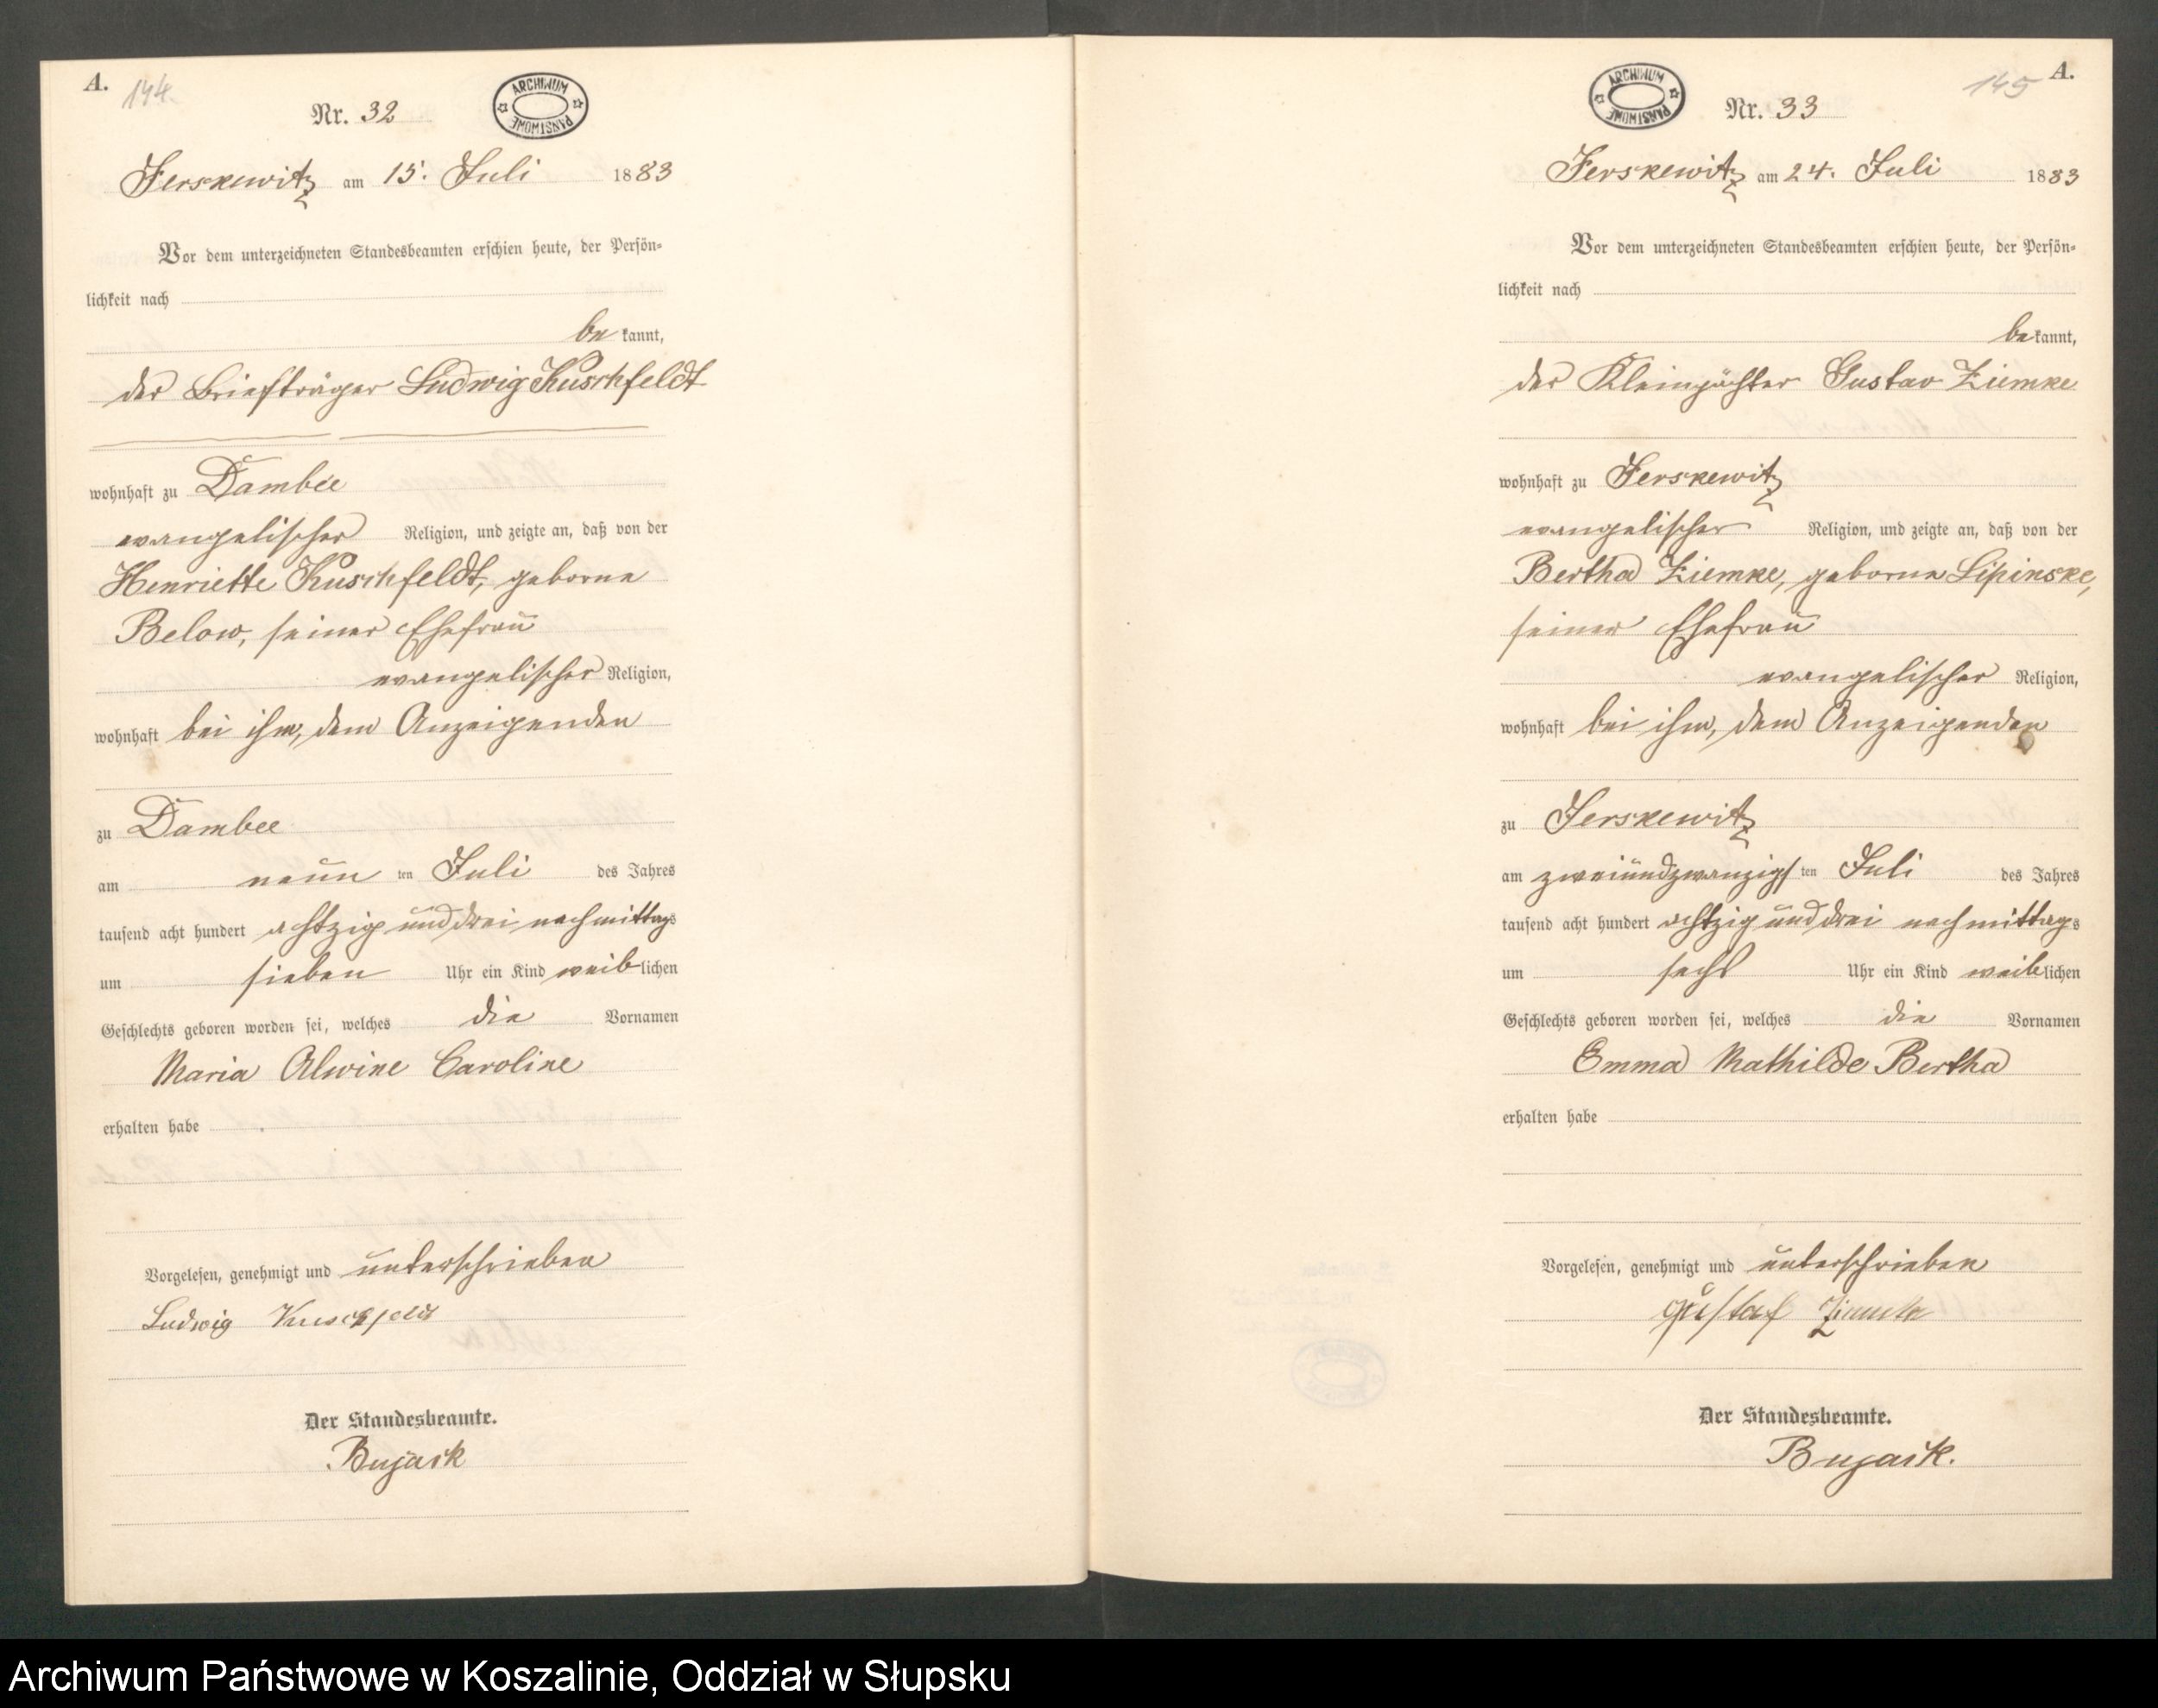 A.
144.
Nr. 32
ARCHIWUM PAŃSTWOWE
Jerskewitz am 15. Juli 1883
Vor dem unterzeichneten Standesbeamten erschien heute, der Persön-
lichkeit nach
be kannt,
der Briefträger Ludwig Kuschfeldt
wohnhaft zu Dambee
evangelischer Religion, und zeigte an, daß von der
Henriette Kuschfeldt, geborne
Below, seiner Ehefrau
evangelischer Religion,
wohnhaft bei ihm, dem Anzeigenden
zu Dambee
am neun ten Juli des Jahres
tausend acht hundert achtzig und drei nachmittags
um sieben Uhr ein Kind weiblichen
Geschlechts geboren worden sei, welches die Vornamen
Maria Alwine Caroline
erhalten habe
Vorgelesen, genehmigt und unterschrieben
Ludwig Kuschfeldt
Der Standesbeamte.
Bujack
ARCHIWUM PAŃSTWOWE
Nr. 33
145
A.
Jerskewitz am 24. Juli 1883
Vor dem unterzeichneten Standesbeamten erschien heute, der Persön-
lichkeit nach
bekannt,
der Kleinpächter Gustav Ziemke
wohnhaft zu Jerskewitz
evangelischer Religion, und zeigte an, daß von der
Bertha Ziemke, geborne Lipinske,
seiner Ehefrau
evangelischer Religion,
wohnhaft bei ihm, dem Anzeigenden
zu Jerskewitz
am zweiundzwanzigsten Juli des Jahres
tausend acht hundert achtzig und drei nachmittags
um sechs Uhr ein Kind weiblichen
Geschlechts geboren worden sei, welches die Vornamen
Emma Mathilde Bertha
erhalten habe
Vorgelesen, genehmigt und unterschrieben
Gustaf Ziemke
Der Standesbeamte.
Bujack.
Archiwum Państwowe w Koszalinie, Oddział w Słupsku